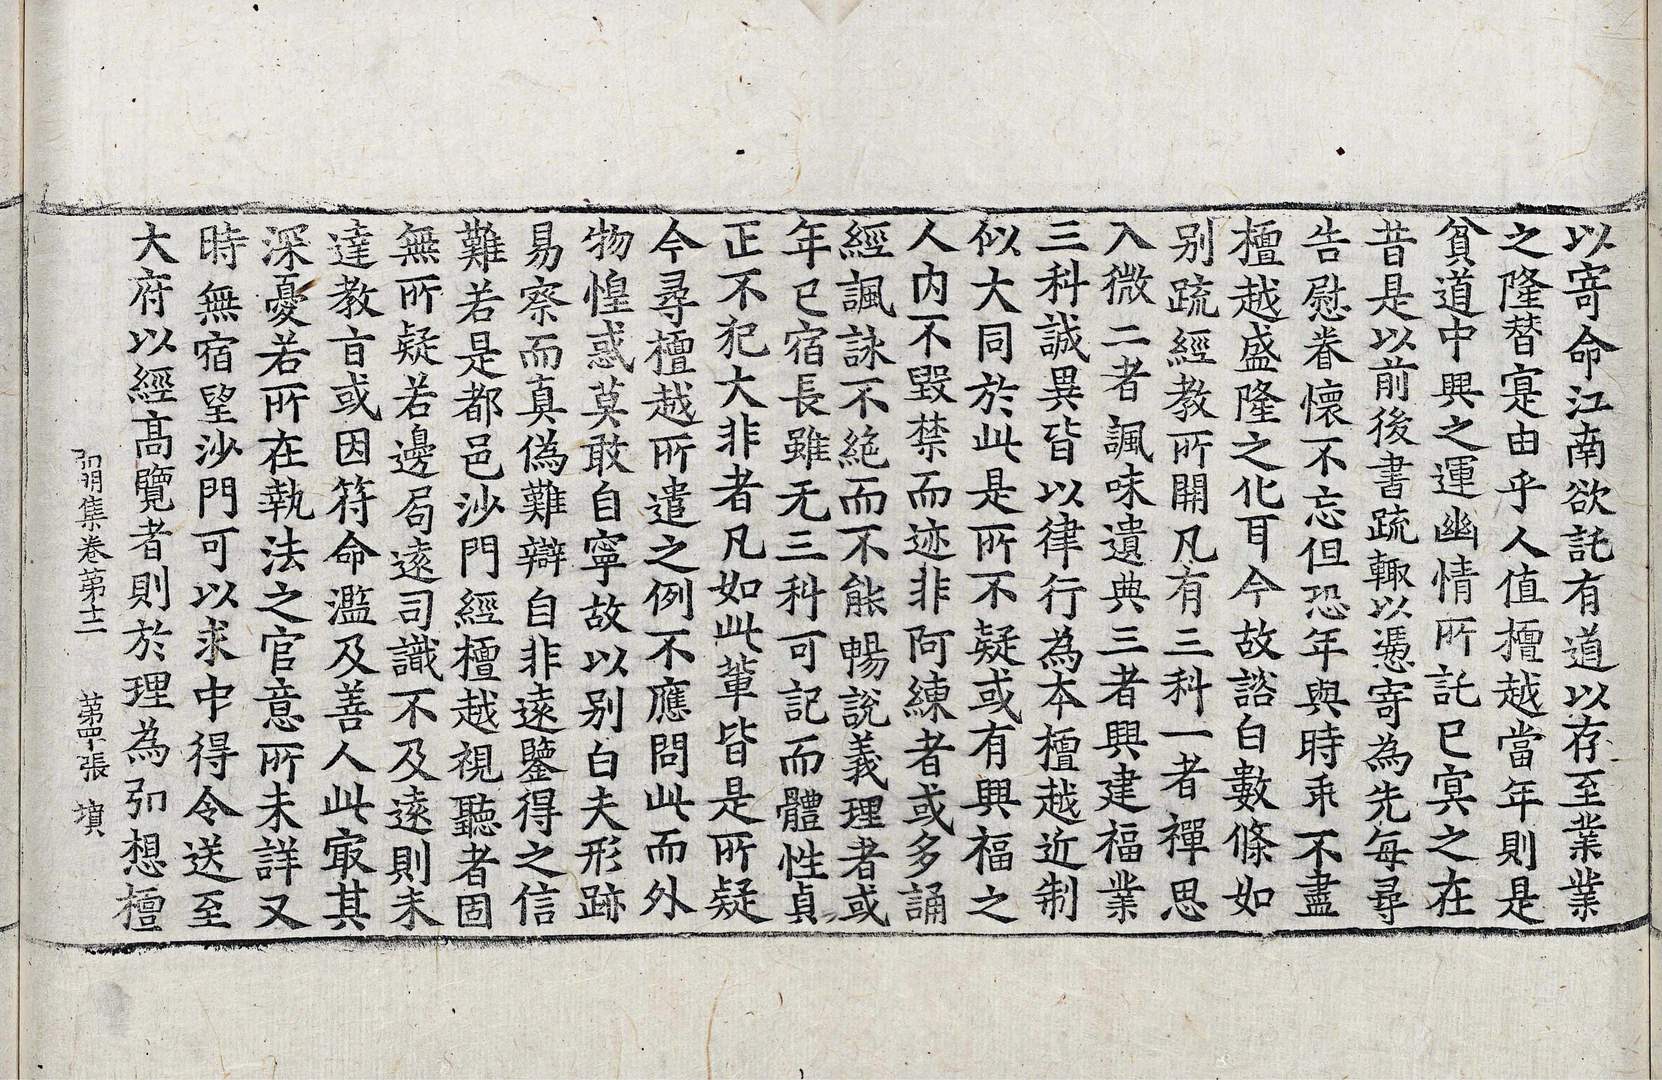 以寄命江南欲託有道以存至業業
之隆替寔由乎人值檀越當年則是
貧道中興之運幽情所託已冥之在
昔是以前後書疏輙以憑寄為先每尋
告慰眷懷不忘但恐年與時乖不盡
檀越盛隆之化耳今故諮白數條如
别疏經教所開凡有三科一者禪思
入微二者諷味遺典三者興建福業
三科誠異皆以律行為本檀越近制
似大同於此是所不疑或有興福之
人内不毀禁而迹非阿練者或多誦
經諷詠不絶而不能暢說義理者或
年已宿長雖无三科可記而體性貞
正不犯大非者凡如此軰皆是所疑
今尋檀越所遣之例不應問此而外
物惶惑莫敢自寧故以别白夫形跡
易察而真偽難辯自非遠鑒得之信
難若是都邑沙門經檀越視聽者固
無所疑若邊局遠司識不及遠則未
達教旨或因符命濫及善人此㝡其
深憂若所在執法之官意所未詳又
時無宿望沙門可以求中得令送至
大府以經髙覽者則於理為弘想檀
弘明集卷第十二 第四十張 墳